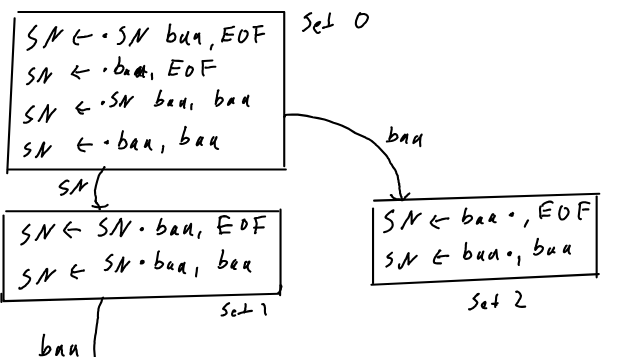 SN ← ·SN baa, EOF
SN ← ·baa, EOF
SN ← ·SN baa, baa
SN ← ·baa, baa
Set 0
baa
SN
SN ← SN·baa, EOF
SN ← SN·baa, baa
Set 1
SN ← baa·, EOF
SN ← baa·, baa
Set 2
baa